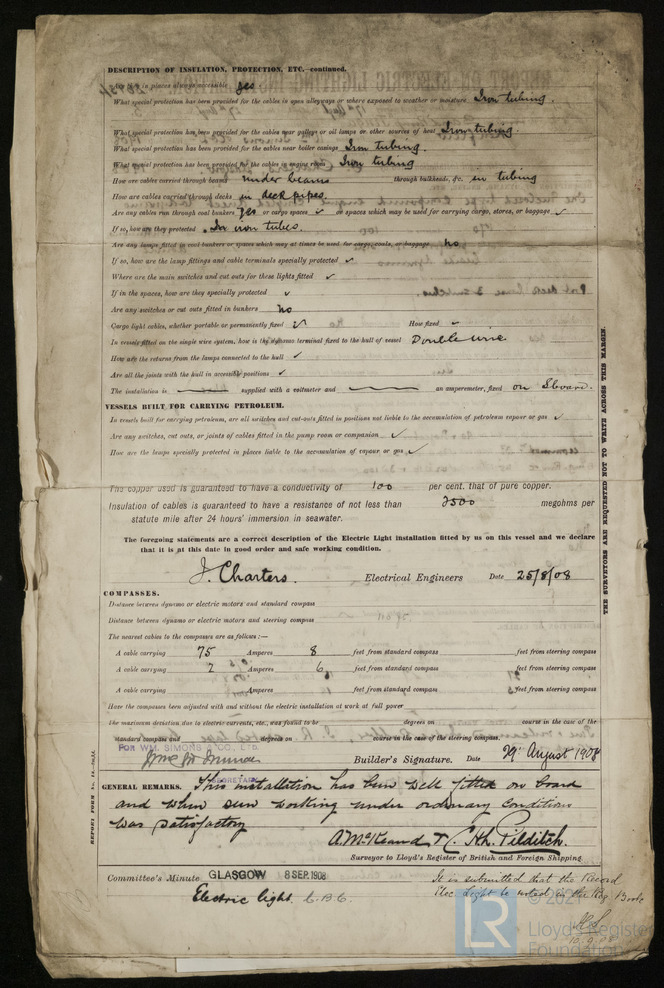 DESCRIPTION OF INSULATION, PROTECTION, ETC.—continued.
in places always accessible yes
What special protection has been provided for the cables in open alleyways or where exposed to weather or moisture Iron tubing.
What special protection has been provided for the cables near galleys or oil lamps or other sources of heat Iron tubing.
What special protection has been provided for the cables near boiler casings Iron tubing.
What special protection has been provided for the cables in engine room Iron tubing
How are cables carried through beams under beams through bulkheads, &c. in tubing
How are cables carried through decks in deck pipes.
Are any cables run through coal bunkers yes or cargo spaces ✓ or spaces which may be used for carrying cargo, stores, or baggage ✓
If so, how are they protected In iron tubes.
Are any lamps fitted in coal bunkers or spaces which may at times be used for cargo, coals, or baggage No
If so, how are the lamp fittings and cable terminals specially protected ✓
Where are the main switches and cut outs for these lights fitted ✓
If in the spaces, how are they specially protected ✓
Are any switches or cut outs fitted in bunkers No
Cargo light cables, whether portable or permanently fixed ✓ How fixed ✓
In vessels fitted on the single wire system, how is the dynamo terminal fixed to the hull of vessel Double wire.
How are the returns from the lamps connected to the hull ✓
Are all the joints with the hull in accessible positions ✓
The installation is supplied with a voltmeter and an amperemeter, fixed on Sboard.
VESSELS BUILT FOR CARRYING PETROLEUM.
In vessels built for carrying petroleum, are all switches and cut-outs fitted in positions not liable to the accumulation of petroleum vapour or gas ✓
Are any switches, cut outs, or joints of cables fitted in the pump room or companion ✓
How are the lamps specially protected in places liable to the accumulation of vapour or gas ✓
The copper used is guaranteed to have a conductivity of 100 per cent. that of pure copper.
Insulation of cables is guaranteed to have a resistance of not less than 2500 megohms per
statute mile after 24 hours' immersion in seawater.
The foregoing statements are a correct description of the Electric Light installation fitted by us on this vessel and we declare
that it is at this date in good order and safe working condition.
J. Charters. Electrical Engineers Date 25/8/08
COMPASSES.
Distance between dynamo or electric motors and standard compass
Distance between dynamo or electric motors and steering compass
The nearest cables to the compasses are as follows:—
A cable carrying 75 Amperes 8 feet from standard compass feet from steering compass
A cable carrying 2 Amperes 6 feet from standard compass feet from steering compass
A cable carrying Amperes feet from standard compass feet from steering compass
Have the compasses been adjusted with and without the electric installation at work at full power
The maximum deviation due to electric currents, etc., was found to be degrees on course in the case of the
standard compass and degrees on course in the case of the steering compass.
FOR WM. SIMONS & CO., LTD.
Builder's Signature. Date 29 August 1908
SECRETARY
GENERAL REMARKS. This installation has been well fitted on board
and when seen working under ordinary conditions
was satisfactory
A. McKeand & Ch. Pilditch.
Surveyor to Lloyd's Register of British and Foreign Shipping.
Committee's Minute GLASGOW 8 SEP. 1908
Electric light.
It is submitted that the Record
Elec. Light be noted in the Reg. Book
THE SURVEYORS ARE REQUESTED NOT TO WRITE ACROSS THIS MARGIN.
LR
Lloyd's Register
Foundation